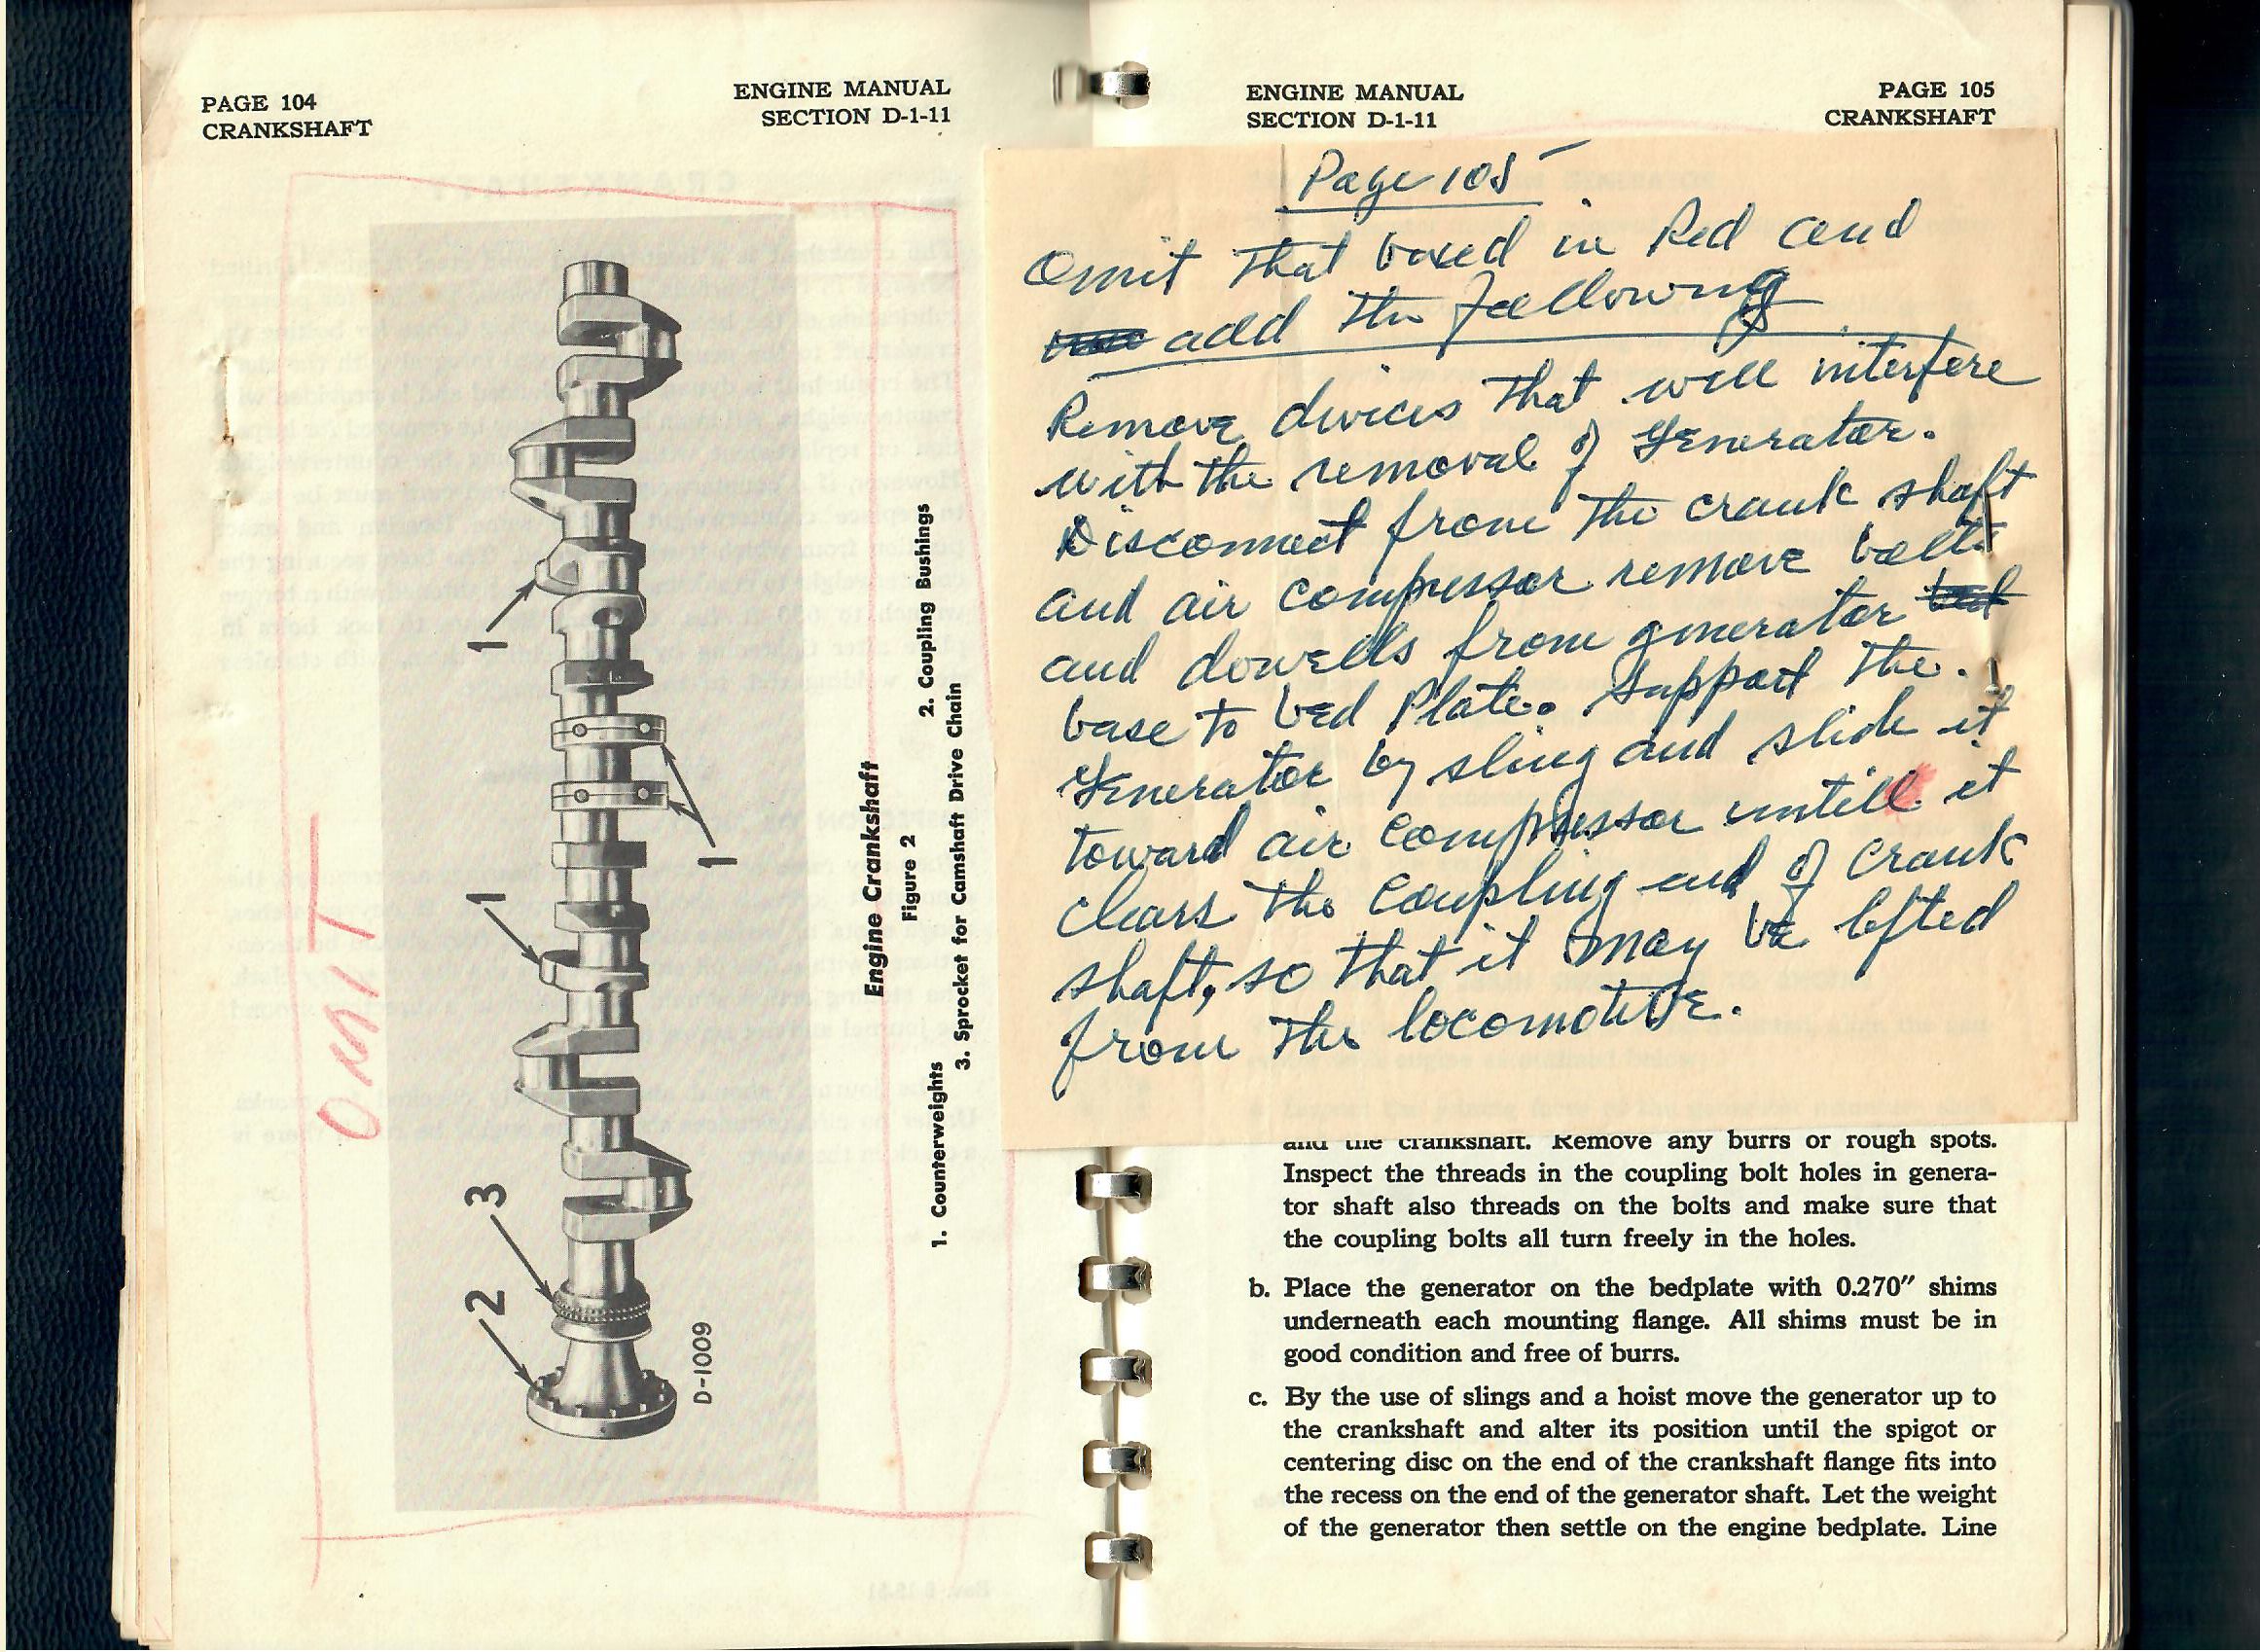 PAGE 104
CRANKSHAFT
ENGINE MANUAL
SECTION D-1-11
OMIT
1
1
1
3
2
D-1009
Engine Crankshaft
Figure 2
1. Counterweights 2. Coupling Bushings
3. Sprocket for Camshaft Drive Chain
ENGINE MANUAL
SECTION D-1-11
PAGE 105
CRANKSHAFT
Page 105
Omit that boxed in Red and
add the following
Remove divices that will interfere
with the removal of Generator.
Disconnect from the crank shaft
and air compressor remove bolts
and dowells from generator
base to bed Plate. Support the.
Generator by sling and slide it
toward air compressor untill it
clears the coupling end of crank
shaft, so that it may be lifted
from the locomotive.
and the crankshaft. Remove any burrs or rough spots.
Inspect the threads in the coupling bolt holes in genera-
tor shaft also threads on the bolts and make sure that
the coupling bolts all turn freely in the holes.
b. Place the generator on the bedplate with 0.270″ shims
underneath each mounting flange. All shims must be in
good condition and free of burrs.
c. By the use of slings and a hoist move the generator up to
the crankshaft and alter its position until the spigot or
centering disc on the end of the crankshaft flange fits into
the recess on the end of the generator shaft. Let the weight
of the generator then settle on the engine bedplate. Line